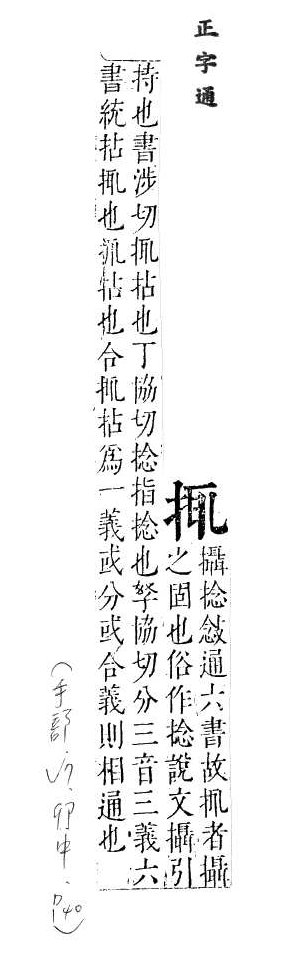 正字通
𢬴
攝捻敜通六書故𢬴者攝
之固也俗作捻說文攝引
持也書涉切𢬴拈也丁協切捻指捻也孥協切分三音三義六
書統拈𢬴也𢬴拈也合𢬴拈爲一義或分或合義則相通也
(手部.卯中.P40)